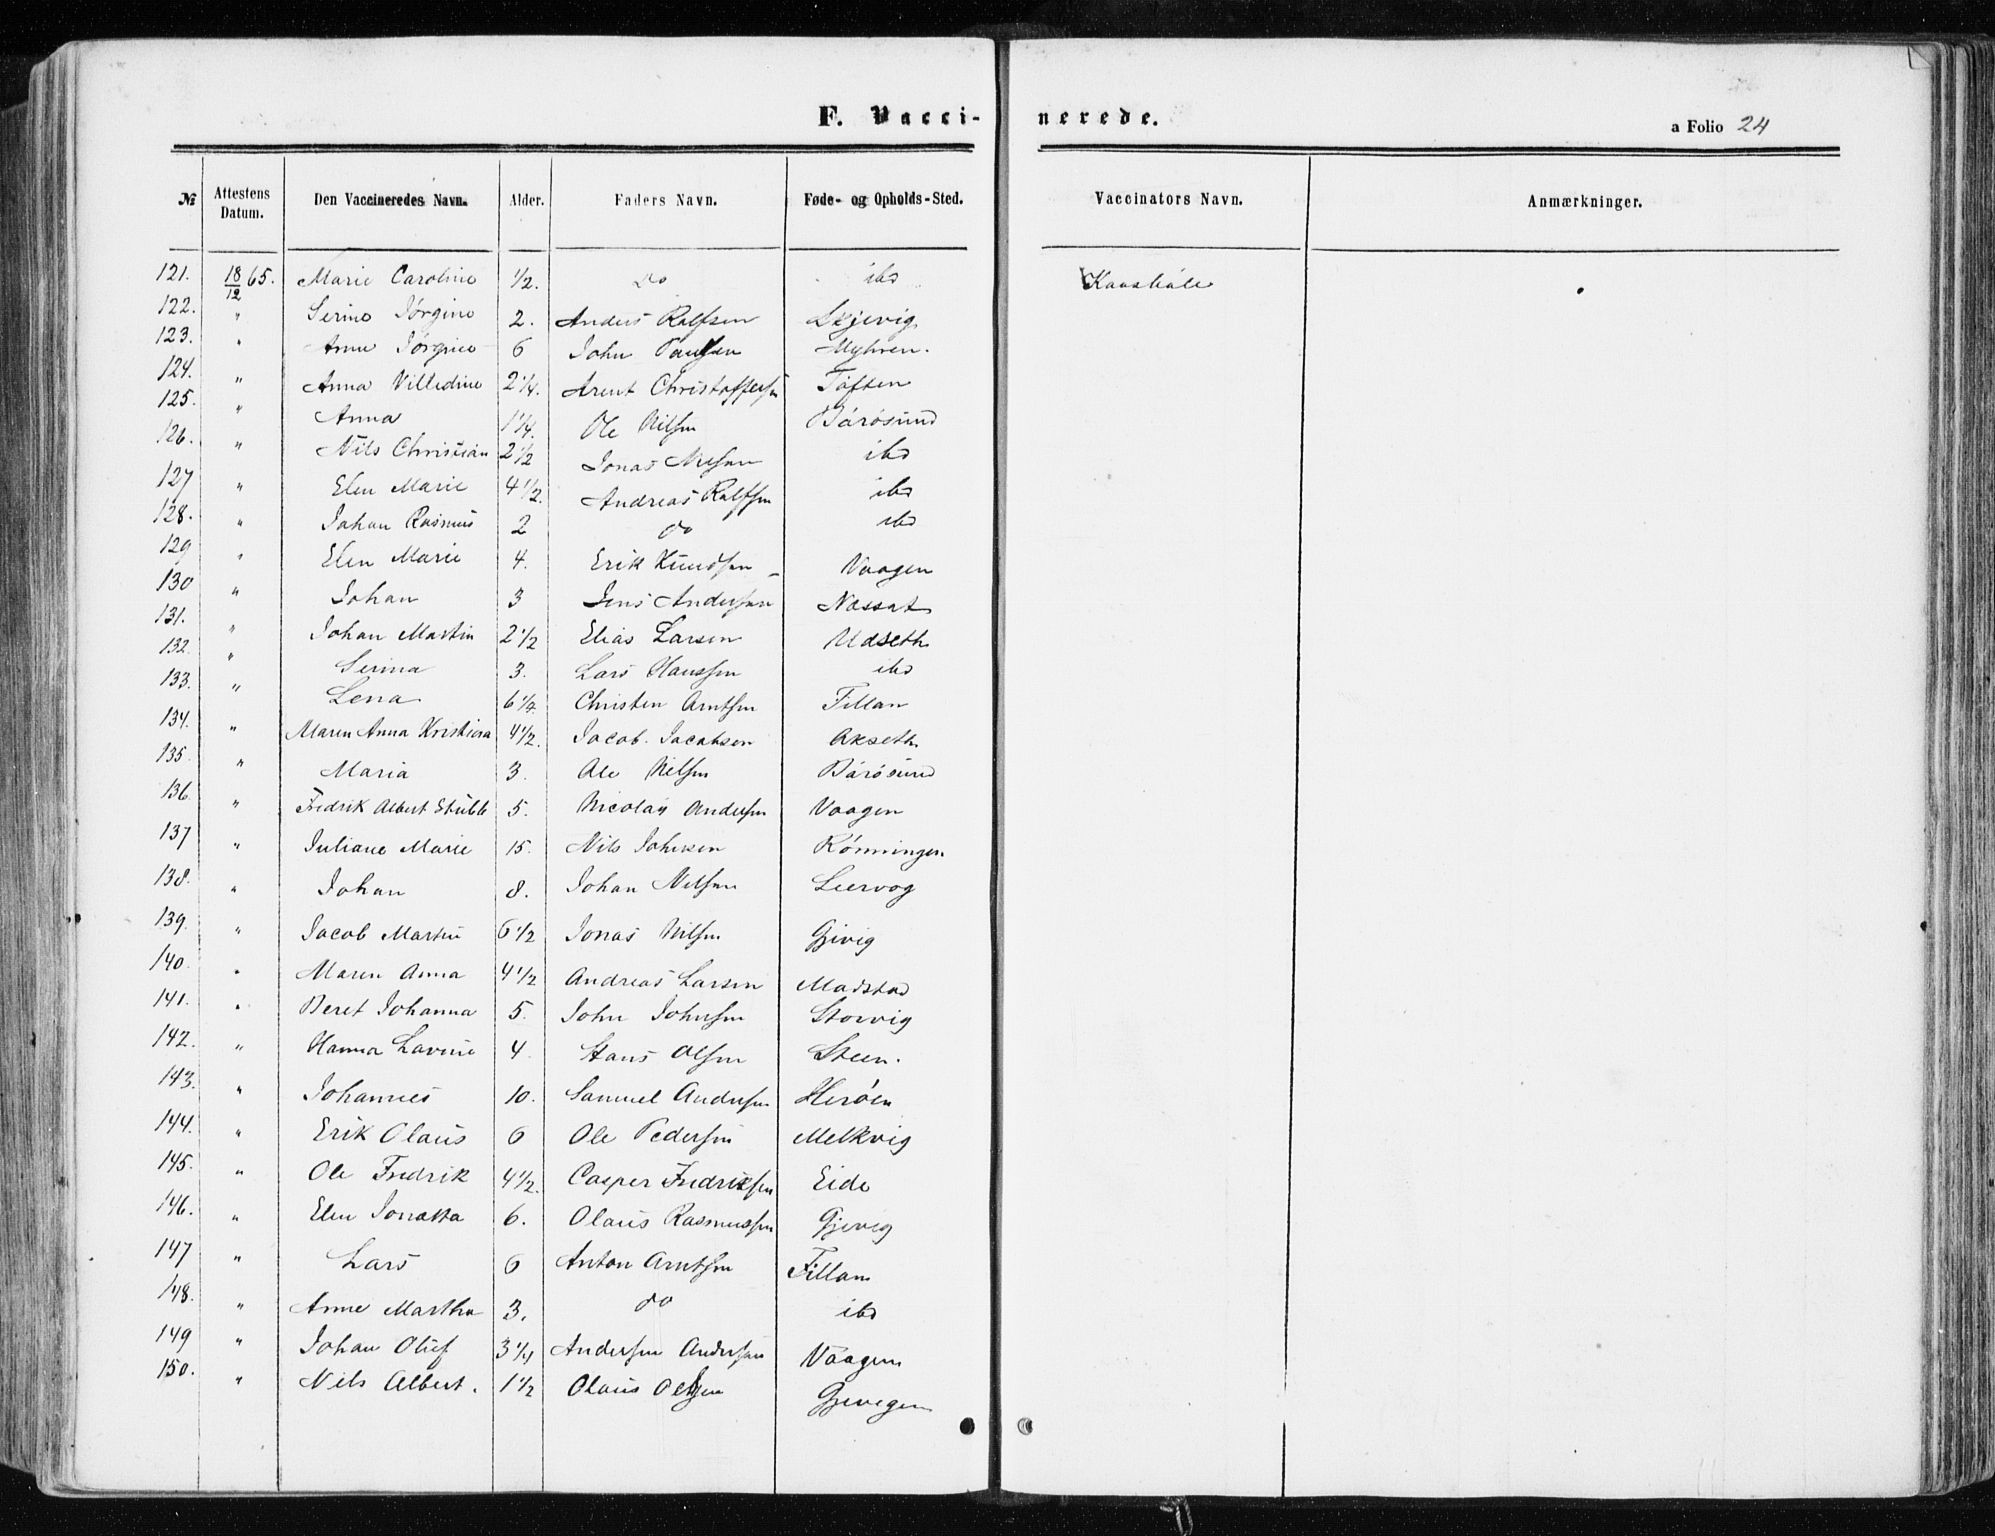 F. Vaccinerede.
a Folio 24
№ Attestens Datum. Den Vaccineredes Navn. Alder. Faders Navn. Føde- og Opholds-Sted. Vaccinators Navn. Anmærkninger.
121. 18/12 65. Marie Caroline 1/2. do ibd
122. " Serine Jørgine 2. Anders Rolfsen
123. " Anne Jørgine 6 John Paulsen Myhren.
124. " Anna Villedine 2 1/4. Arent Christoffersen Toften
125. " Anna 1 1/4. Ole Nilsen Barøsund
126. " Nils Christian 2 1/2 Jonas Nilsen ibd
127 " Elen Marie 4 1/2. Andreas Rolfsen ibd
128. " Johan Rasmus 2 do ibd
129 " Elen Marie 4. Erik Knudsen Vaagen
130 " Johan 3 Jens Andersen
131. " Johan Martin 2 1/2 Elias Larsen Udseth
132. " Serina 3. Lars Hanssen ibd
133. " Lena 6 1/4. Christen Arntsen Fillan
134. " Maren Anna Kristiena 4 1/2. Jacob Jacobsen Akseth
135. " Maria 3. Ole Nilsen Barøsund
136. " Fredrik Albert Stubb 5. Nicolay Andersen Vaagen
137 " Juliane Marie 15. Nils Johnsen Rønningen
138. " Johan 8. Johan Nilsen Leervog
139. " Jacob Martin 6 1/2 Jonas Nilsen Gjivig
140. " Maren Anna 4 1/2 Andreas Larsen Madstad
141. " Beret Johanna 5. John Johnsen Storvig
142. " Hanna Lavine 4. Hans Olsen Steen.
143. " Johannes 10. Samuel Andersen Herøen
144. " Erik Olaus 6 Ole Pedersen Melkvig
145. " Ole Fredrik 4 1/2. Casper Fredriksen Eide
146. " Elen Jonatta 6. Olaus Rasmussen Gjevig
147 " Lars 6 Anton Arntsen Fillan
148. " Anne Martha 3. do ibd
149 " Johan Oluf 3 1/4 Andersen Andersen Vaagen
150. " Nils Albert. 1 1/2 Olaus Olsen Gjevigen